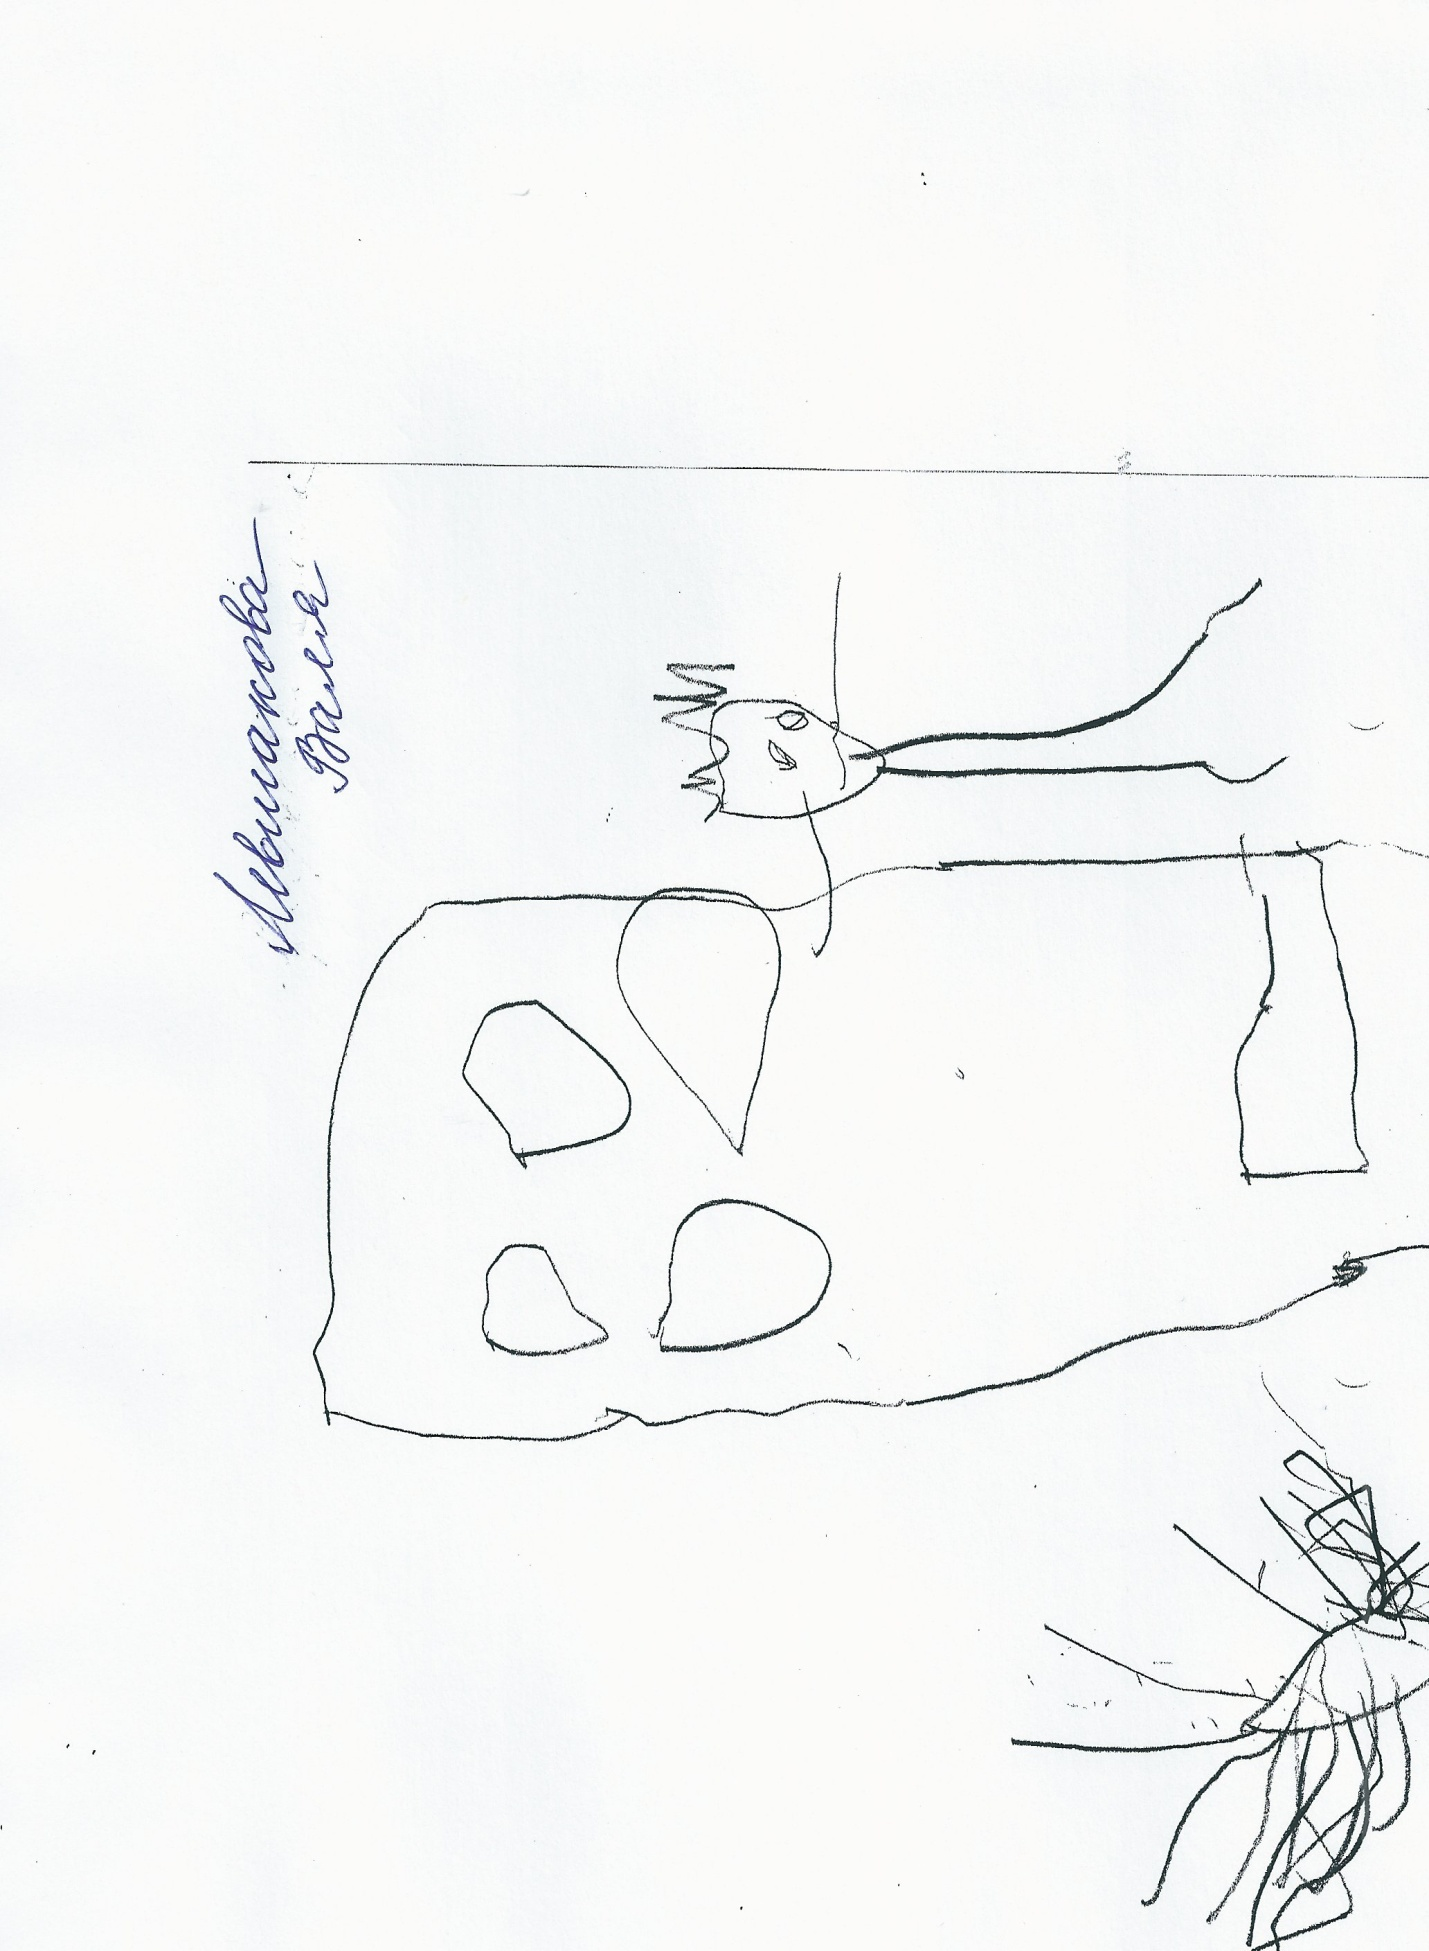 Левшакова
Валя